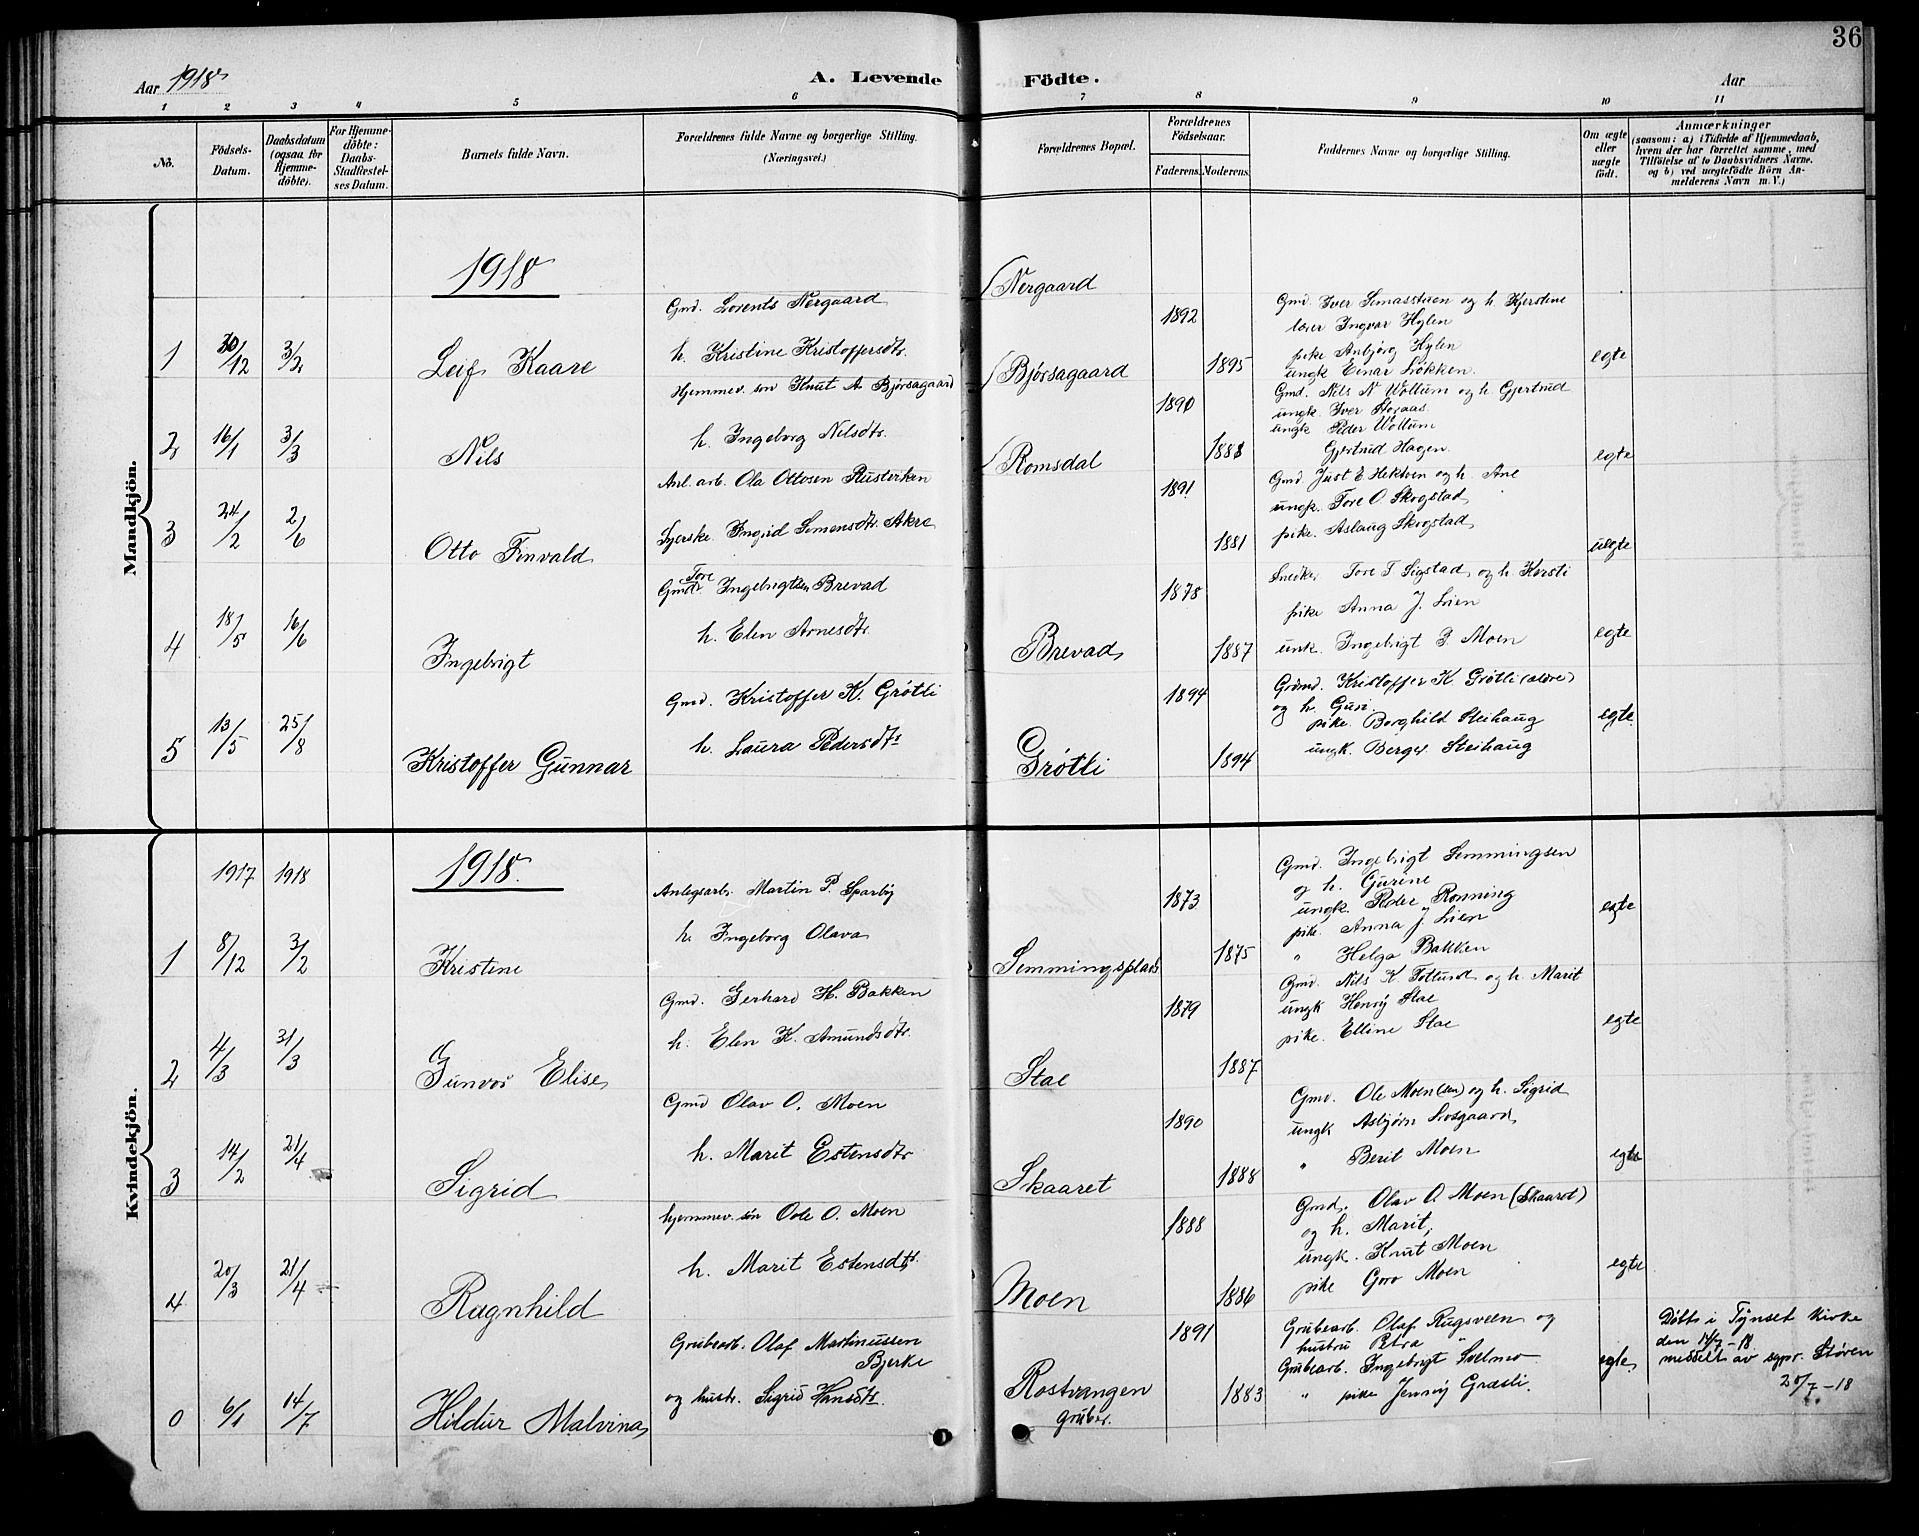 36
Aar 1918
A. Levende Födte.
Aar
1 2 3 4 5 6 7 8 9 10 11
No.
Födsels-Datum.
Daabsdatum (ogsaa for Hjemme-döbte).
For Hjemme-döbte: Daabs-Stadfæstel-ses Datum.
Barnets fulde Navn.
Forældrenes fulde Navne og borgerlige Stilling. (Næringsvei.)
Forældrenes Bopæl.
Forældrenes Födselsaar.
Faderens. Moderens.
Faddernes Navne og borgerlige Stilling.
Om ægte eller uægte födt.
Anmærkninger
(saasom: a) i Tilfælde af Hjemmedaab, hvem der har forrettet samme, med Tilföielse af to Daabsvidners Navne. og b) ved uægtefödte Börn An-melderens Navn m. V.)
Mandkjön.
1918
1 30/12 3/2 Leif Kaare
Gmd. Lorents Nergaard
h. Kristine Kristoffersdtr.
Nergaard
1892 1895
Gmd. Iver Semasstuen og h. Kjerstine
lærer Ingvar Hylen
pike Anbjørg Hylen
ungk. Einar Løkken.
egte
2 16/1 3/3 Nils
Hjemmev. søn Knut A. Bjørsagaard
h. Ingeborg Nilsdtr.
Bjørsagaard
1890 1888
Gmd. Nils N Wollum og h. Gjertrud
ungk. Iver Storaas.
ungk Peder Wollum
Gjertrud Hagen.
egte
3 24/2 2/6 Otto Finvald
Anl. arb. Ola Ottosen Rusteiken
Syerske Ingrid Simensdtr. Akre
Romsdal
1891 1881
Gmd. Just E Hektoen og h. Ane
ungk. Tore O. Skogstad
pike. Aslaug Skogstad
uegte
4 18/5 16/6 Ingebrigt
Gmd. Tore Ingebrigtsen Brevad
h. Elen Arnesdtr.
Brevad
1878 1887
Snedker Tore T Sigstad og h. Kersti
pike Anna J. Lien
unk. Ingebrigt P. Moen
egte
5 13/5 25/8 Kristoffer Gunnar
Gmd. Kristoffer K. Grøtli
h. Laura Pedersdtr
Grøtli
1894 1894
Grdmd. Kristoffer K Grøtli (ældre)
og h. Guri
pike. Borghild Steihaug
ungk. Berger Steihaug
egte
Kvindekjön.
1917 1918 1918.
1 8/12 3/2 Kristine
Anlegsarb. Martin P. Sparby
h. Ingeborg Olava
Semmingsplads
1873 1875
Gmd. Ingebrigt Semmingsen
og h. Gurine
ungk. Peder Rønning
pike. Anna J. Lien
" Helga Bakken
egte
2 4/3 31/3 Gunvor Elise
Gmd. Gerhard H. Bakken
h. Elen K. Amundsdtr.
Stae
1879 1887
Gmd. Nils K Totlund og h. Marit
ungk Henry Stae
pike. Elline Stae
egte
3 14/2 21/4 Sigrid
Gmd Olav O. Moen
h. Marit Estensdtr
Skaaret
1890 1888
Gmd. Ole Moen (sen) og h. Sigrid
ungk Asbjørn Losgaard
" Berit Moen
egte
4 20/3 21/4 Ragnhild
hjemmev. søn Ole O. Moen
h. Marit Estensdtr.
Moen
1888 1886
Gmd. Olav O. Moen (Skaaret)
og h. Marit,
ungk. Knut Moen
pike Goro Moen
egte
0 6/1 14/7 Hildur Malvina
Grubearb. Olaf Martinussen Bjerke
og hustr. Sigrid Hansdtr.
Røstvangen Gruber.
1891 1883
Grubearb. Olaf Rugsveen og
hustru Petra "
Grubearb. Ingebrigt Selmo
" pike Jenny Græsli.
egte
Døbt i Tynset Kirke
den 14/7 - 18.
meddelt av sgpr. Støren
20/7 - 18